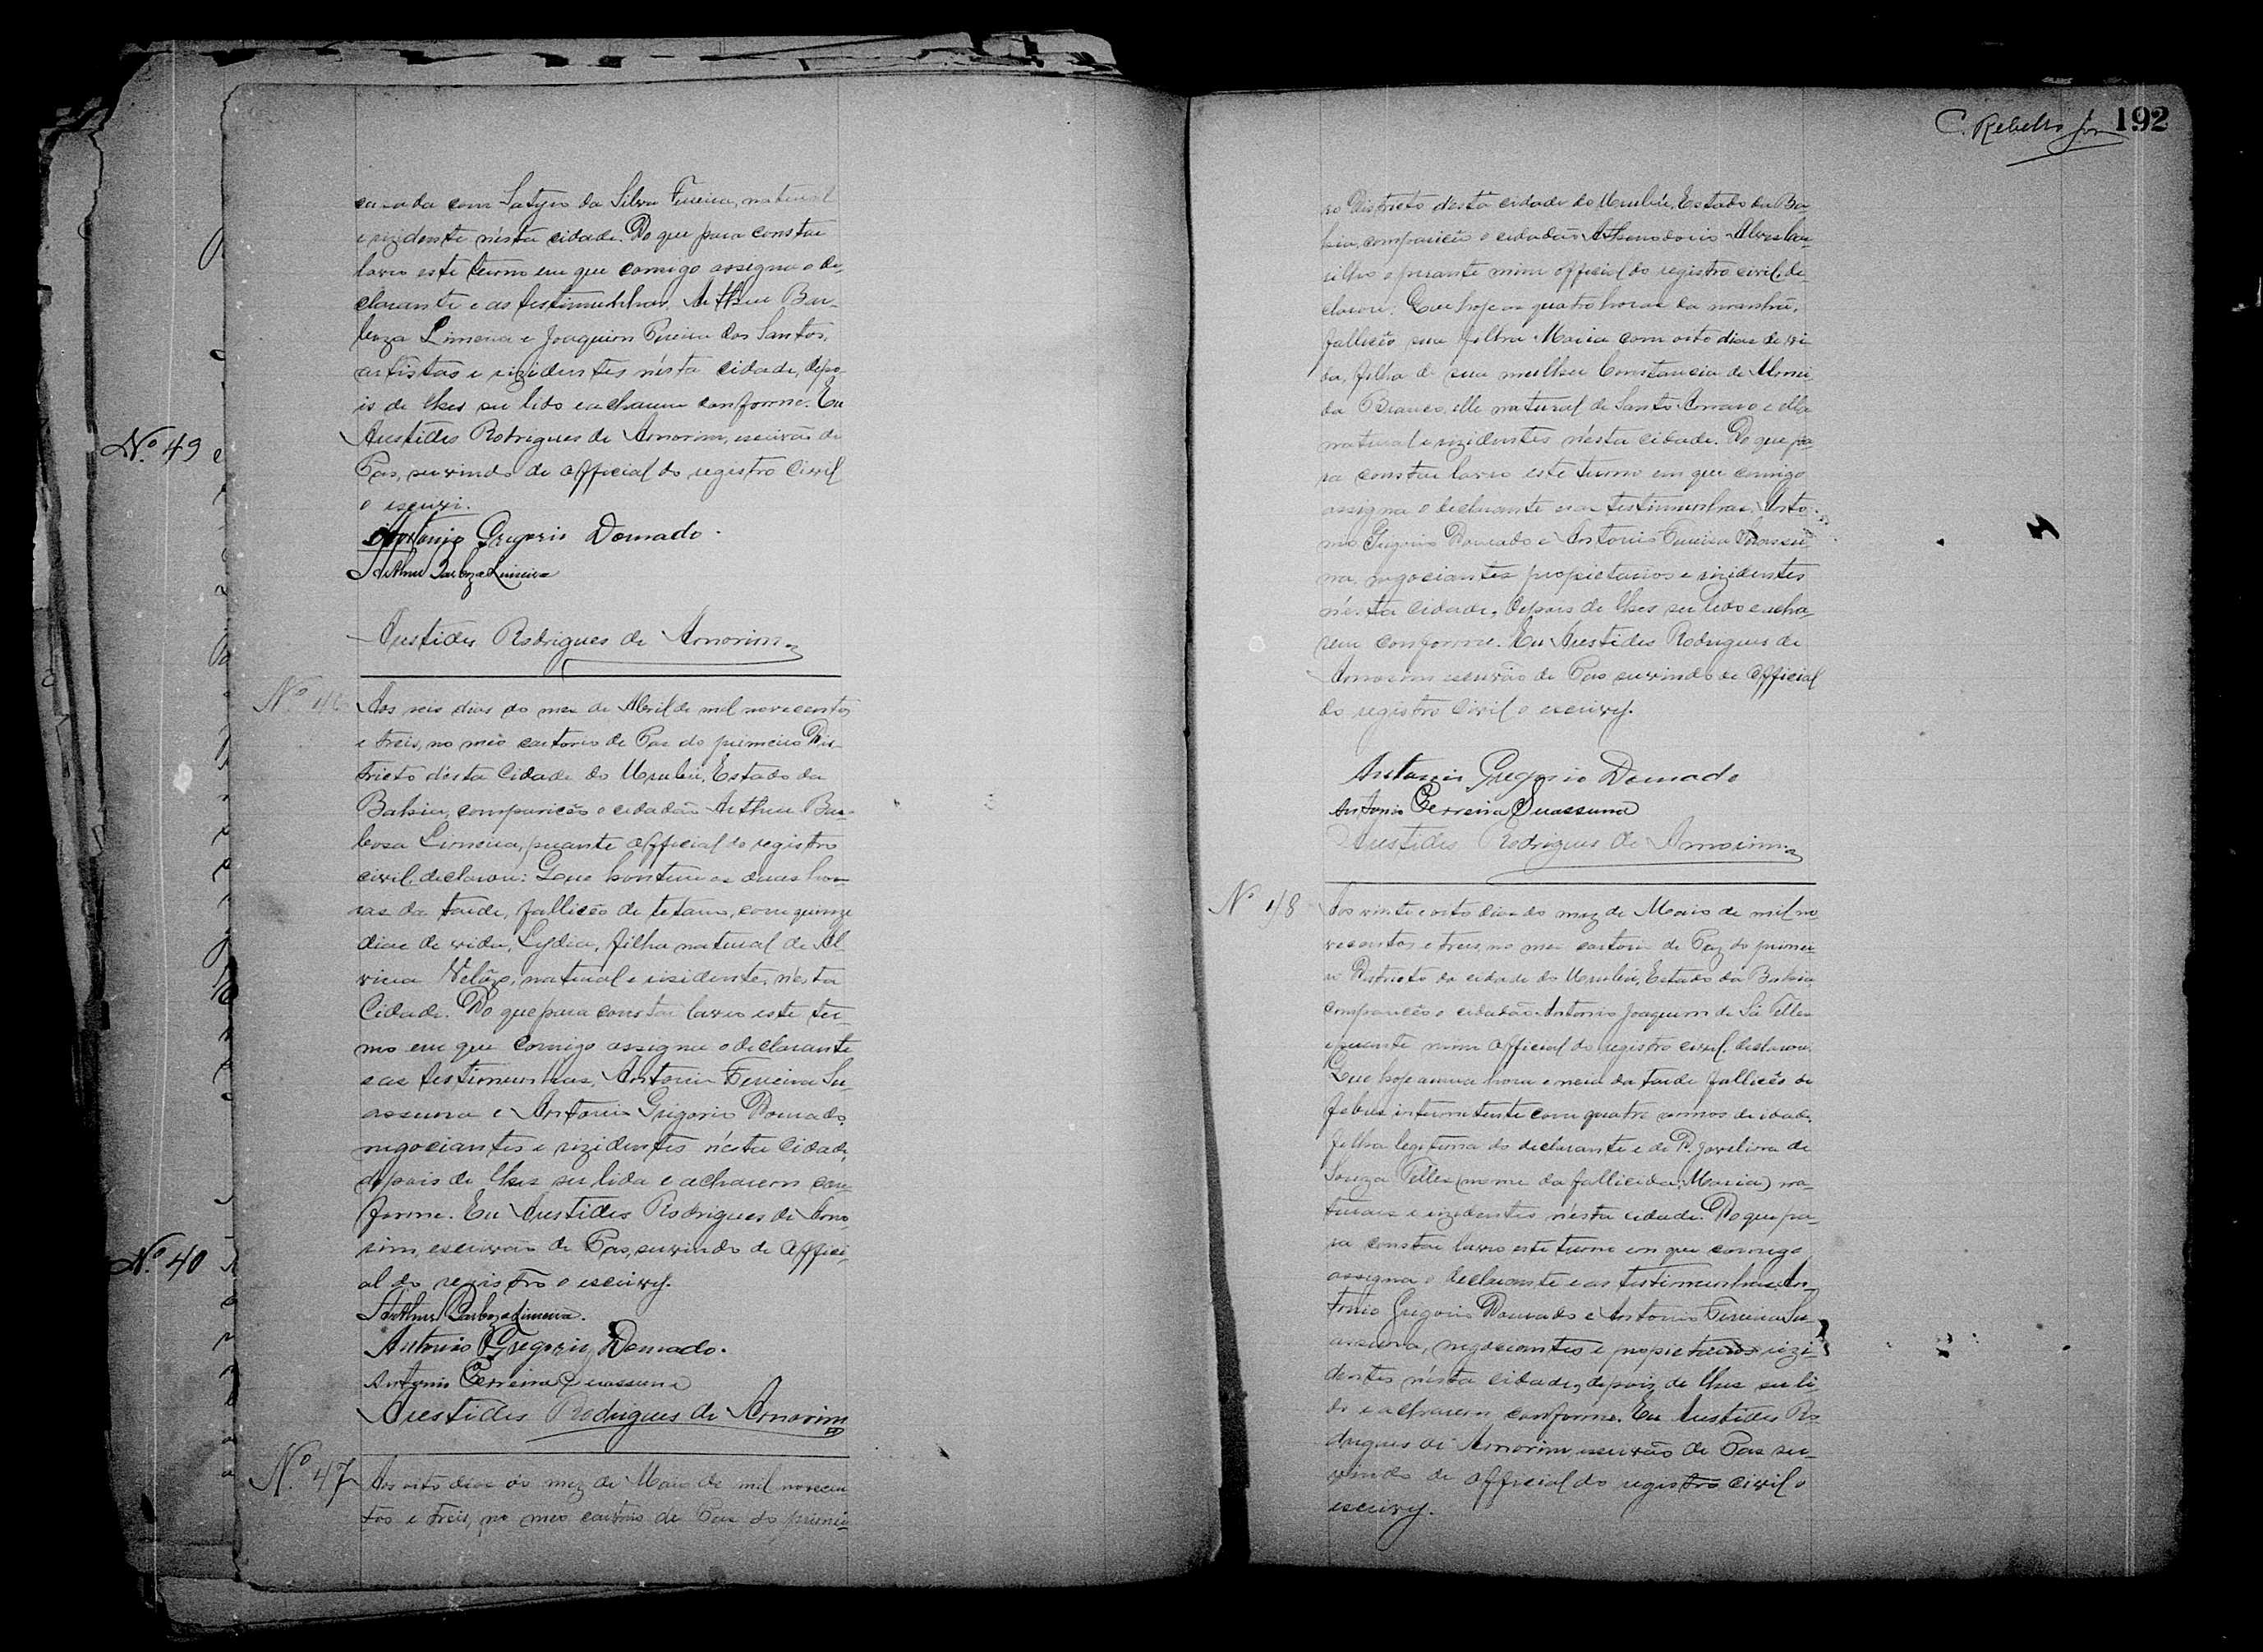 casada com Satyro da Silva Ferreira, natural
e rizidente nésta cidade. Do que para constar
lavro este termo em que comigo assigna o de-
clarante e as testimunhas, Arthur Bar-
boza Limeira e Joaquim Pereira dos Santos,
artistas e rizidentes nésta cidade, depo-
is de lhes ser lido e acharem conforme. Eu
Arestides Rodrigues de Amorim, escrivão de
Pas, servindo de official do registro Civil
o escrevi.
Antonio Gregorio Dourado.
Arthur Barboza Limeira
Arestides Rodrigues de Amorim
Nº 49
Nº 46
Aos seis dias do mez de Abril de mil novecentos
e treis, no meo cartorio de Pas do primeiro Dis-
tricto désta Cidade do Urubú, Estado da
Bahia, compariceo o cidadão Arthur Bar-
bosa Limeira, perante official do registro
civil, declarou: Que hontem as duas ho-
ras da tarde, falliceo de tetano, com quinze
dias de vida, Lydia, filha natural de Al
vina Velôzo, natural e risidente, nésta
Cidade. Do que para constar lavro este ter-
mo em que comigo assigna o declarante
e as testimunhas, Antonio Ferreira Su-
assuna e Antonio Grigorio Dourado,
negociantes e rizidentes nésta Cidade,
depois de lhes ser lida e acharem con-
forme. Eu Arestides Rodrigues de Amo-
rim, escrivão de Pas, servindo de offici-
al do registro o escrevy.
Arthur Barboza Limeira.
Antonio Gregorio Dourado.
Antonio Ferreira Suassuna
Arestides Rodrigues de Amorim
Nº 40
Nº 47
Aos oito dias do mez de Maio de mil novecen
tos e treis, no meo cartorio de Pas do primei-
C. Rebello Jor
192
ro Districto désta cidade do Urubú, Estado da Ba-
hia, compariceo o cidadão Athenodorio Alves
e perante mim official do registro civil, de-
clarou: Que hoje as quatro horas da manhã,
falliceo sua filha Maria com oito dias de vi-
da, filha de sua mulher Constancia de
Branco, elle natural de Santo Amaro e ella
natural e rizidentes nésta cidade. Do que pa-
ra constar lavro este termo em que comigo
assigna o declarante e as testimunhas, Anto-
nio Gregorio Dourado e Antonio Ferreira Suassu-
na, negociantes propietarios e rizidentes
nésta cidade, depois de lhes ser lido e acha-
rem conforme. Eu Arestides Rodrigues de
Amorim escrivão de Pas servindo de official
do registro Civil o escrevy.
Antonio Gregorio Dourado
Antonio Ferreira Suassuna
Arestides Rodrigues de Amorim
Nº 48
Aos vinte e oito dias do mez de Maio de mil no-
vecentos e treis, no meo cartorio de Paz do primei-
ro Districto da cidade do Urubú, Estado da Bahia
compariceo o cidadão Antonio Joaquim de Sá Telles
e perante mim official do registro civil, declarou.
Que hoje a uma hora e meia da tarde falliceo de
febres intermitente com quatro annos de idade,
filha legitima do declarante e de D. Jovelina de
Souza Telles (nome da fallicida, Maria) na-
turaes e rizidentes nésta cidade. Do que pa-
ra constar lavro este termo em que comigo
assigna o declarante e as testimunhas, An-
tonio Gregorio Dourado e Antonio Ferreira Su-
assuna, negociantes e propietarios rizi-
dentes nésta cidade, depois de lhes ser li-
do e acharem conforme. Eu Arestides Ro-
drigues de Amorim escrivão de Pas ser-
vindo de official do registro civil o
escrevy.